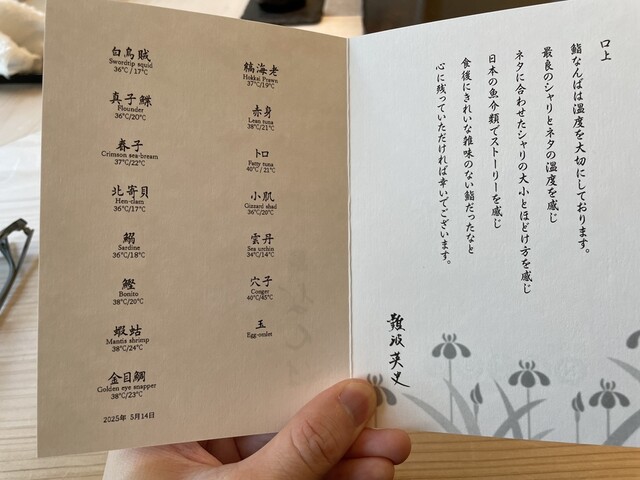 白烏賊
Swordtip squid
36℃/17℃
真子鰈
Flounder
36℃/20℃
春子
Crimson sea-bream
37℃/22℃
北寄貝
Hen-clam
36℃/17℃
鰯
Sardine
36℃/18℃
鰹
Bonito
38℃/20℃
蝦蛄
Mantis shrimp
38℃/24℃
金目鯛
Golden eye snapper
38℃/23℃
2025年 5月14日
縞海老
Hokkai Prawn
37℃/19℃
赤身
Lean tuna
38℃/21℃
トロ
Fatty tuna
40℃/21℃
小肌
Gizzard shad
36℃/20℃
雲丹
Sea urchin
34℃/14℃
穴子
Conger
40℃/45℃
玉
Egg-omlet
口上
鮨なんばは温度を大切にしております。
最良のシャリとネタの温度を感じ
ネタに合わせたシャリの大小とほどけ方を感じ
日本の魚介類でストーリーを感じ
食後にきれいな雑味のない鮨だったなと
心に残っていただければ幸いでございます。
難波英史